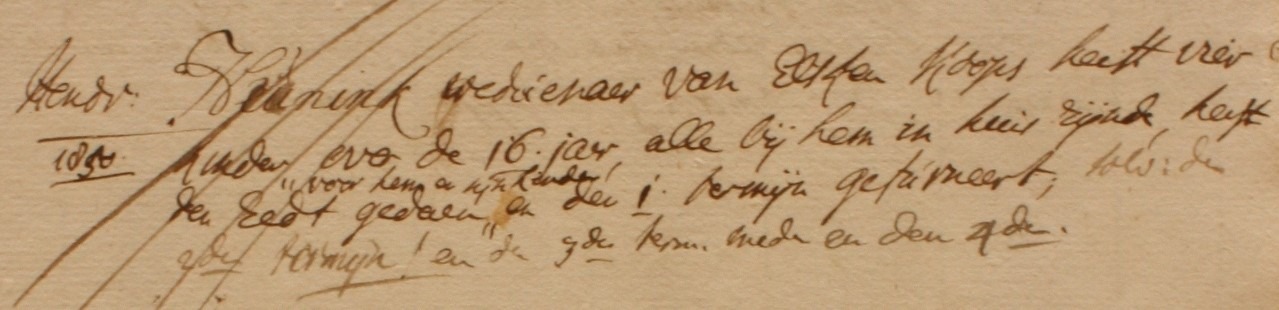 Hendr: Wennink wedüenaer van Elsken Koops heeft vier
1850. kinder ovr de 16. jaer, alle bij hem in huis zijnde, heeft
"voor hem en zijn kinder"
den Eedt gedaen, en den 1. termijn gefürneert, solv: den
2den termijn! en de 3den term. mede en den 4den.